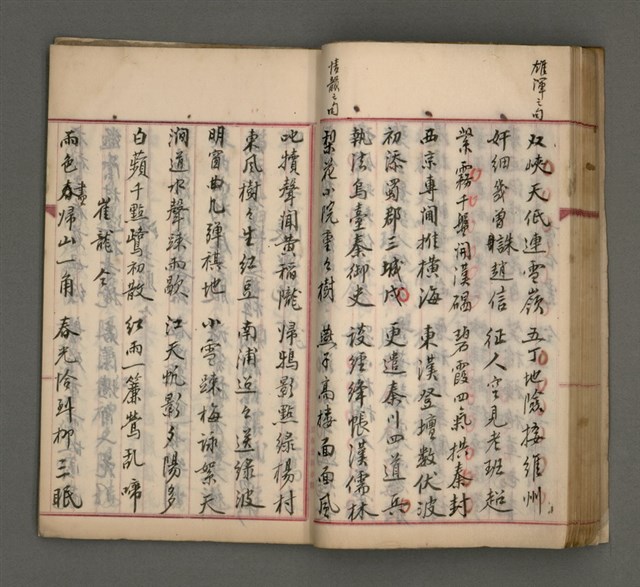 雄渾之句
双峽天低連雪嶺 五丁地險接維州
奸細幾曾誅趙信 征人空見老班超
紫霧千盤開漢碣 碧霞四氣拱秦封
西京專閫推橫海 東漢登壇數伏波
初添蜀郡三城戍 更造秦川四道兵
執法烏臺秦御史 設經絳帳漢儒林
情韻之句
梨花小院重々樹 燕子高楼面面風
叱犢聲闻黄稻隴 帰鴉影點綠楊村
東風樹々生紅豆 南浦迢々送綠波
明窗曲几彈棋地 小雪踈梅詠絮天
澗道水聲踈雨歇 江天帆影夕陽多
白蘋千點鷺初散 紅雨一簾鶯乱啼
崔龍
雨色春帰山一角 春光恰到柳三眠